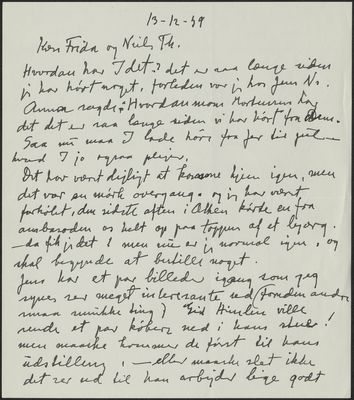 13-12-49
Kære Frida og Niels Th.
Hvordan har I det? det er saa længe siden
jeg har hørt noget, forleden var jeg hos Jens N.
Anna sagde: Hvordan mon Mortensens har
det det er saa længe siden vi har hørt fra dem.
Saa nu maa I lade høre fra jer til
I jo ogsaa plejer.
Det har været dejligt at komme hjem igen, men
det var en mørk overgang og jeg har været
forkølet, den sidste aften i Athen kørte en fra
ambassaden os helt op paa toppen af et bjerg.
da fik jeg det! men nu er jeg normal igen, og
skal begynde at bestille noget.
Jens har et par billeder igang som jeg
synes ser meget interessante ud (Foruden andre
smaa smukke ting) Gid ville
sende et par købere ned i hans
men maaske kommer de først til hans
udstilling, – eller maaske slet ikke
det ser ud til han arbejder lige godt